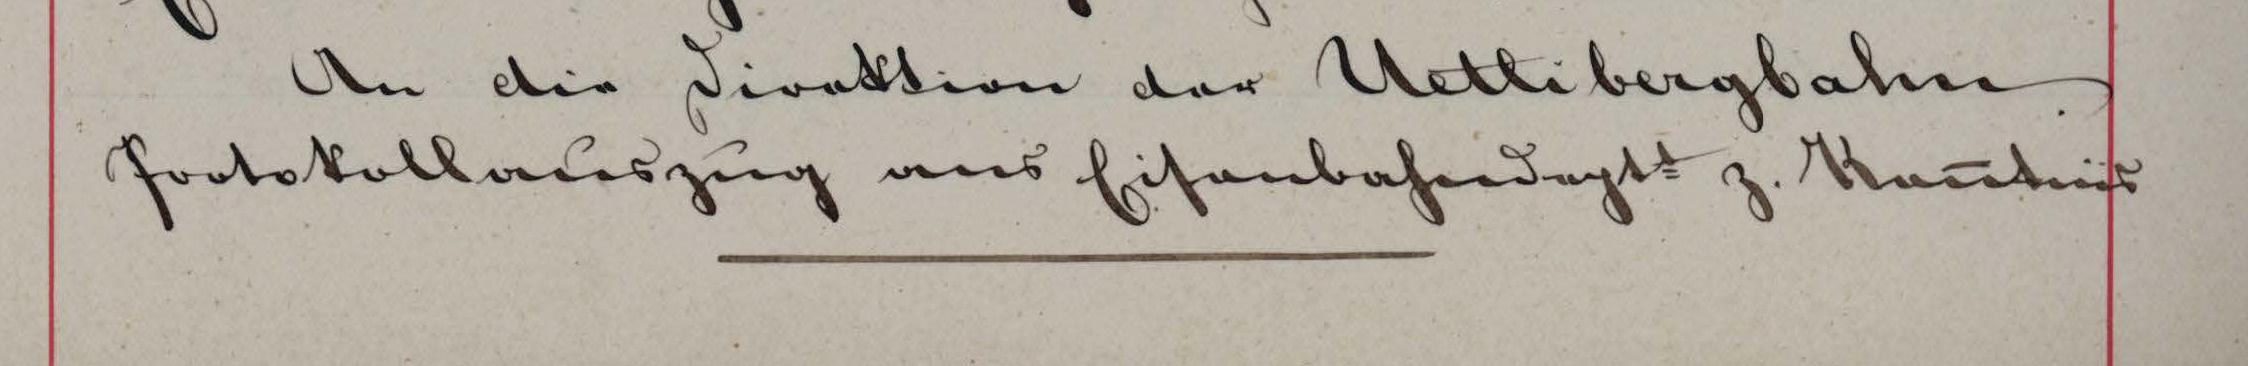 An die Direktion der Uetlibergbahn.
Protokollauszug ans Eisenbahndeptt z. Ken̄tnis